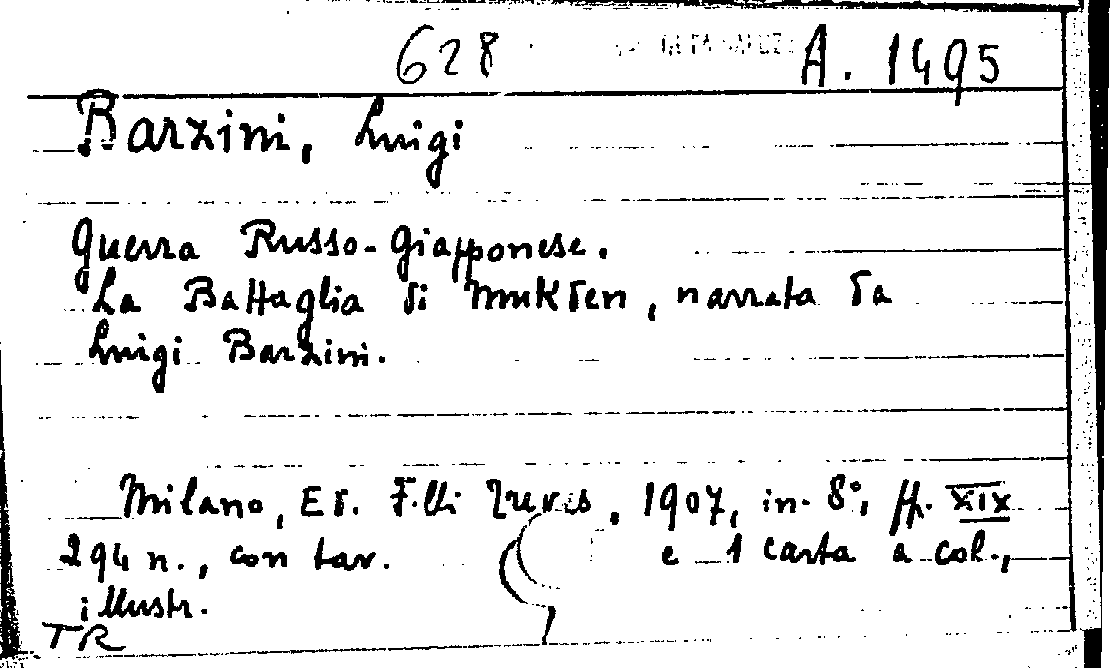 628 A. 1495
Barzini, Luigi
Guerra Russo-Giapponese.
La Battaglia di Mukden, narrata da
Luigi Barzini.
Milano, Ed. F.lli Treves, 1907, in-8°, pp. XIX
294 n., con tav. e 1 carta a col.,
illustr.
TR